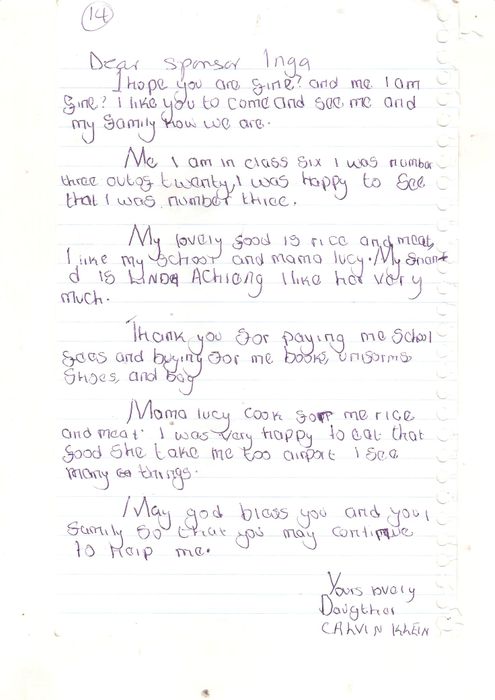 14
Dear Sponsor Inga
I hope you are fine? and me I am
fine? I like you to come and see me and
my family how we are.
Me I am in class six I was number
three out of twenty, I was happy to see
that I was number three.
My lovely food is rice and meat,
I like my school and mama lucy. My friant
d is LINDA ACHIENG I like her very
much.
Thank you for paying me school
fees and buying for me books, uniforms
shoes, and bag
Mama lucy cook for me rice
and meat. I was very happy to eat that
food she take me too airport I see
many things.
May god bless you and your
family so that you may continue
to help me.
Yours lovely
Daugther
CALVIN KLEIN